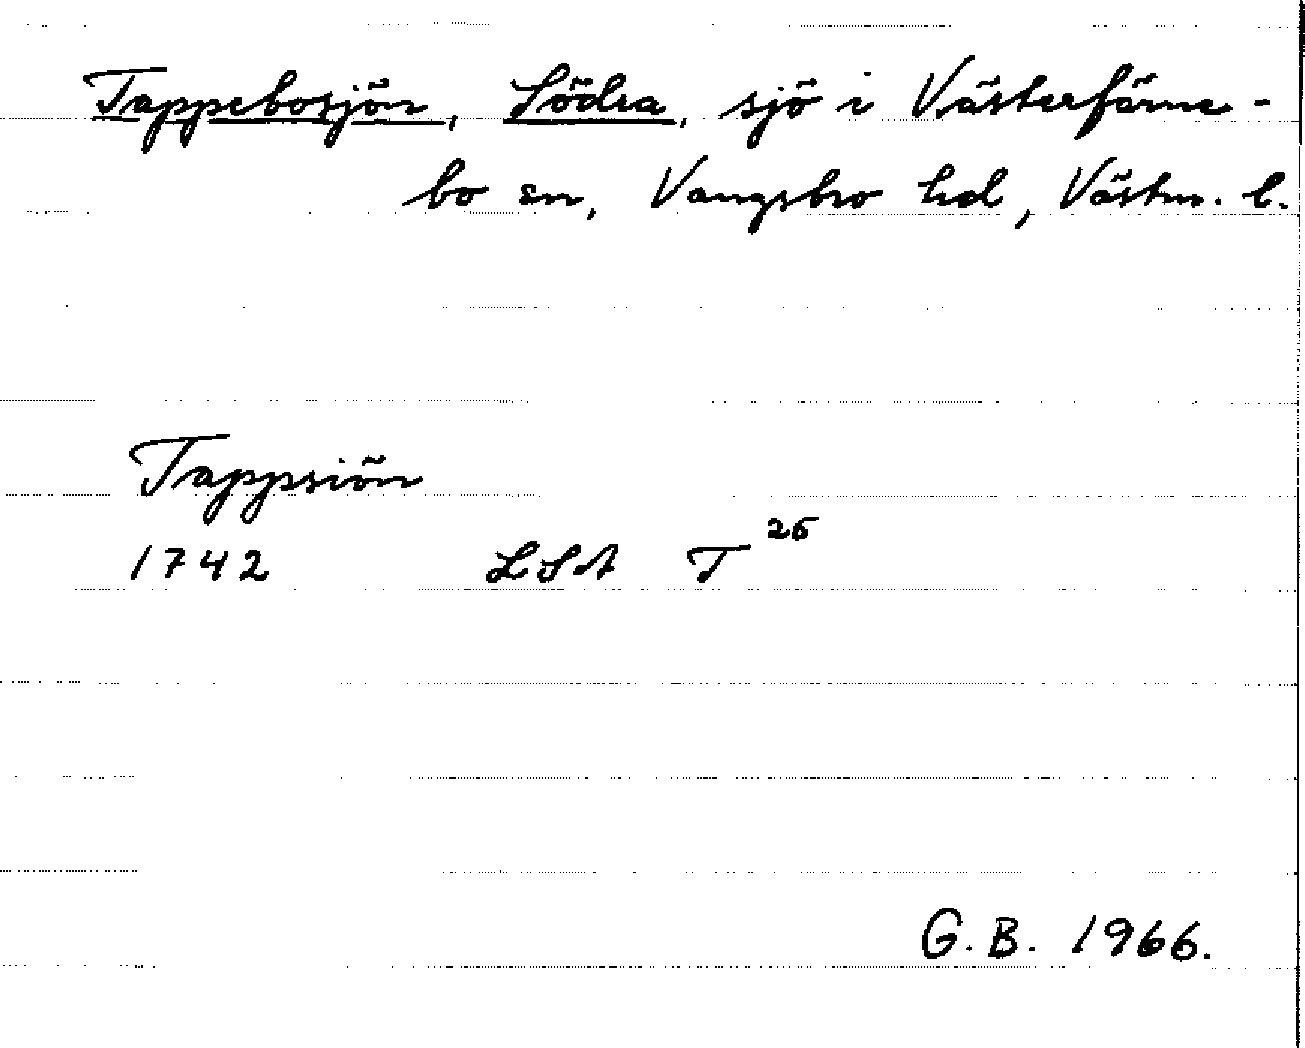 Tappebosjön, Södra, sjö i Västerfärne-
bo sn, Vangsbro hd, Västm. l.
Tappsiön
1742 LSA T 26
G.B. 1966.